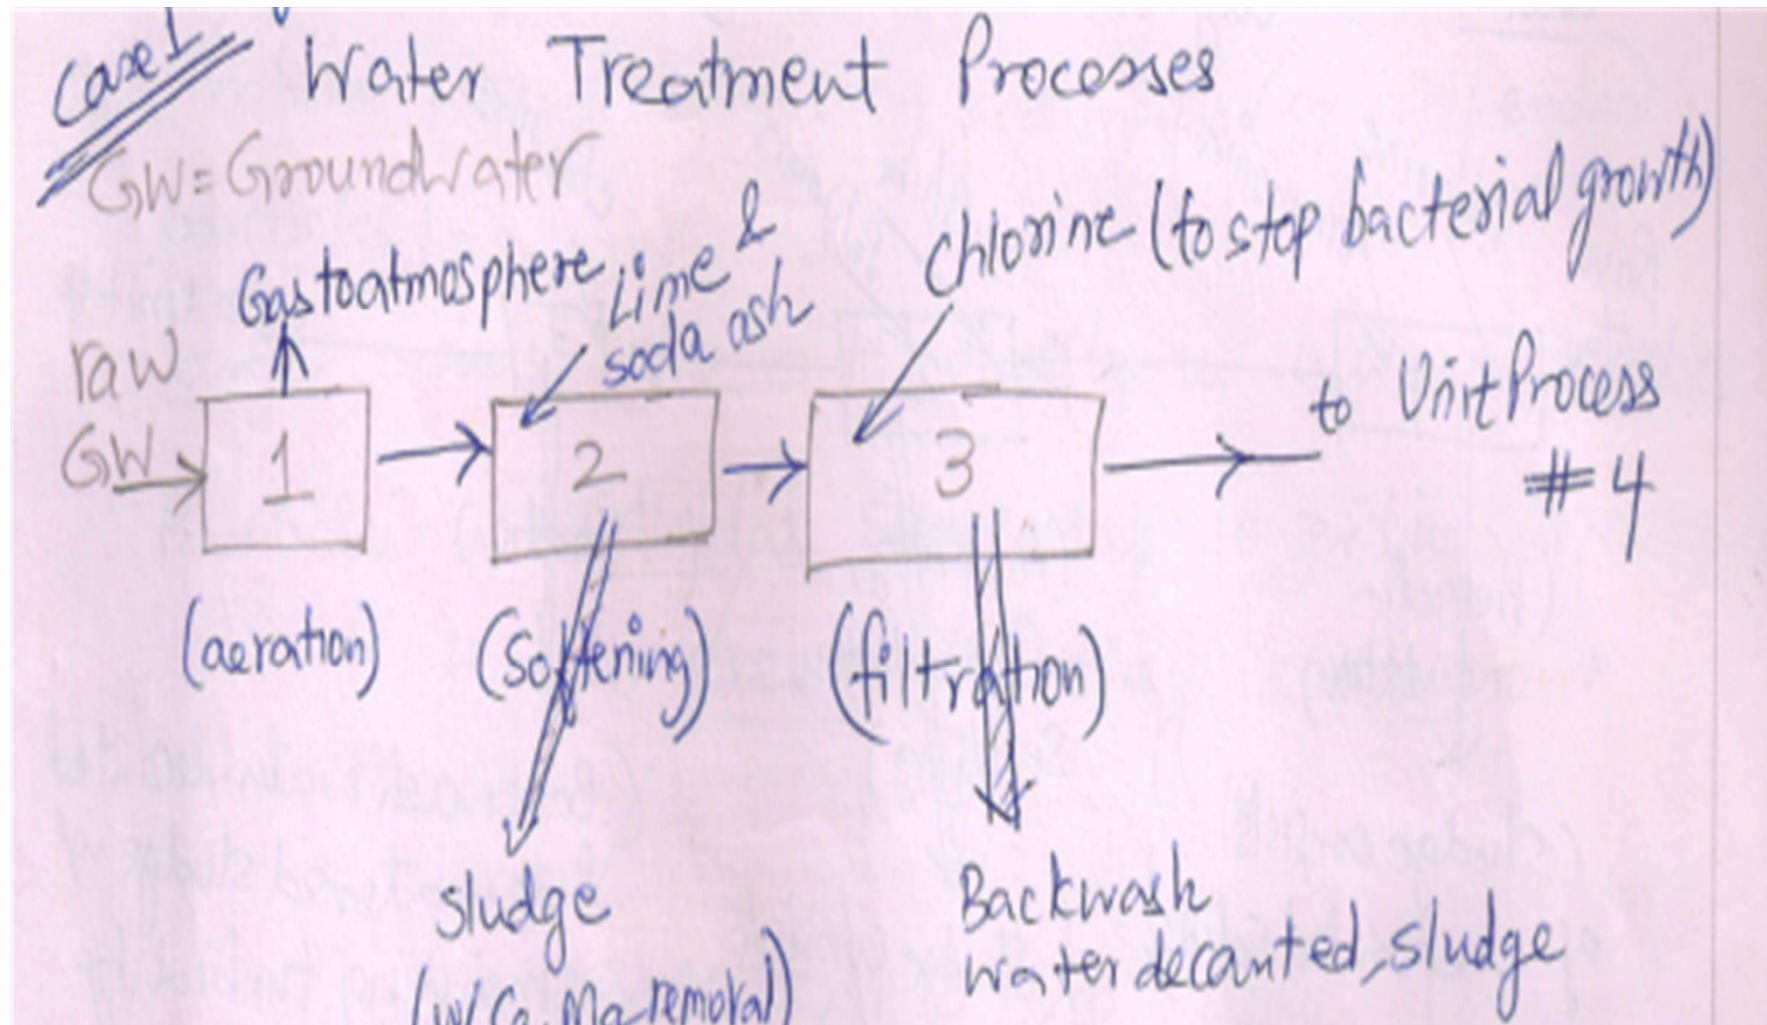 Case 1 Water Treatment Processes
GW = Groundwater
Gas to atmosphere
Lime &
soda ash
Chlorine (to stop bacterial growth)
raw
GW
1
2
3
to Unit Process
#4
(aeration)
(Softening)
(filtration)
sludge
(w/ Ca, Mg removal)
Backwash
water decanted, sludge